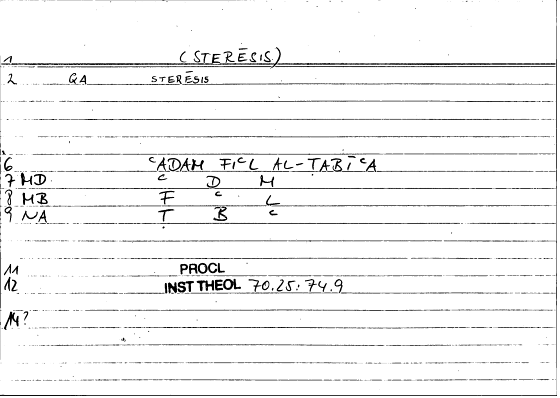 1 (STERĒSIS)
2 QA STERĒSIS
6 ᶜADAM FIᶜL AL-ṬABĪᶜA
7 MD ᶜ D M
8 MB F ᶜ L
9 NA Ṭ B ᶜ
11 PROCL
12 INST THEOL 70.25: 74.9
14?